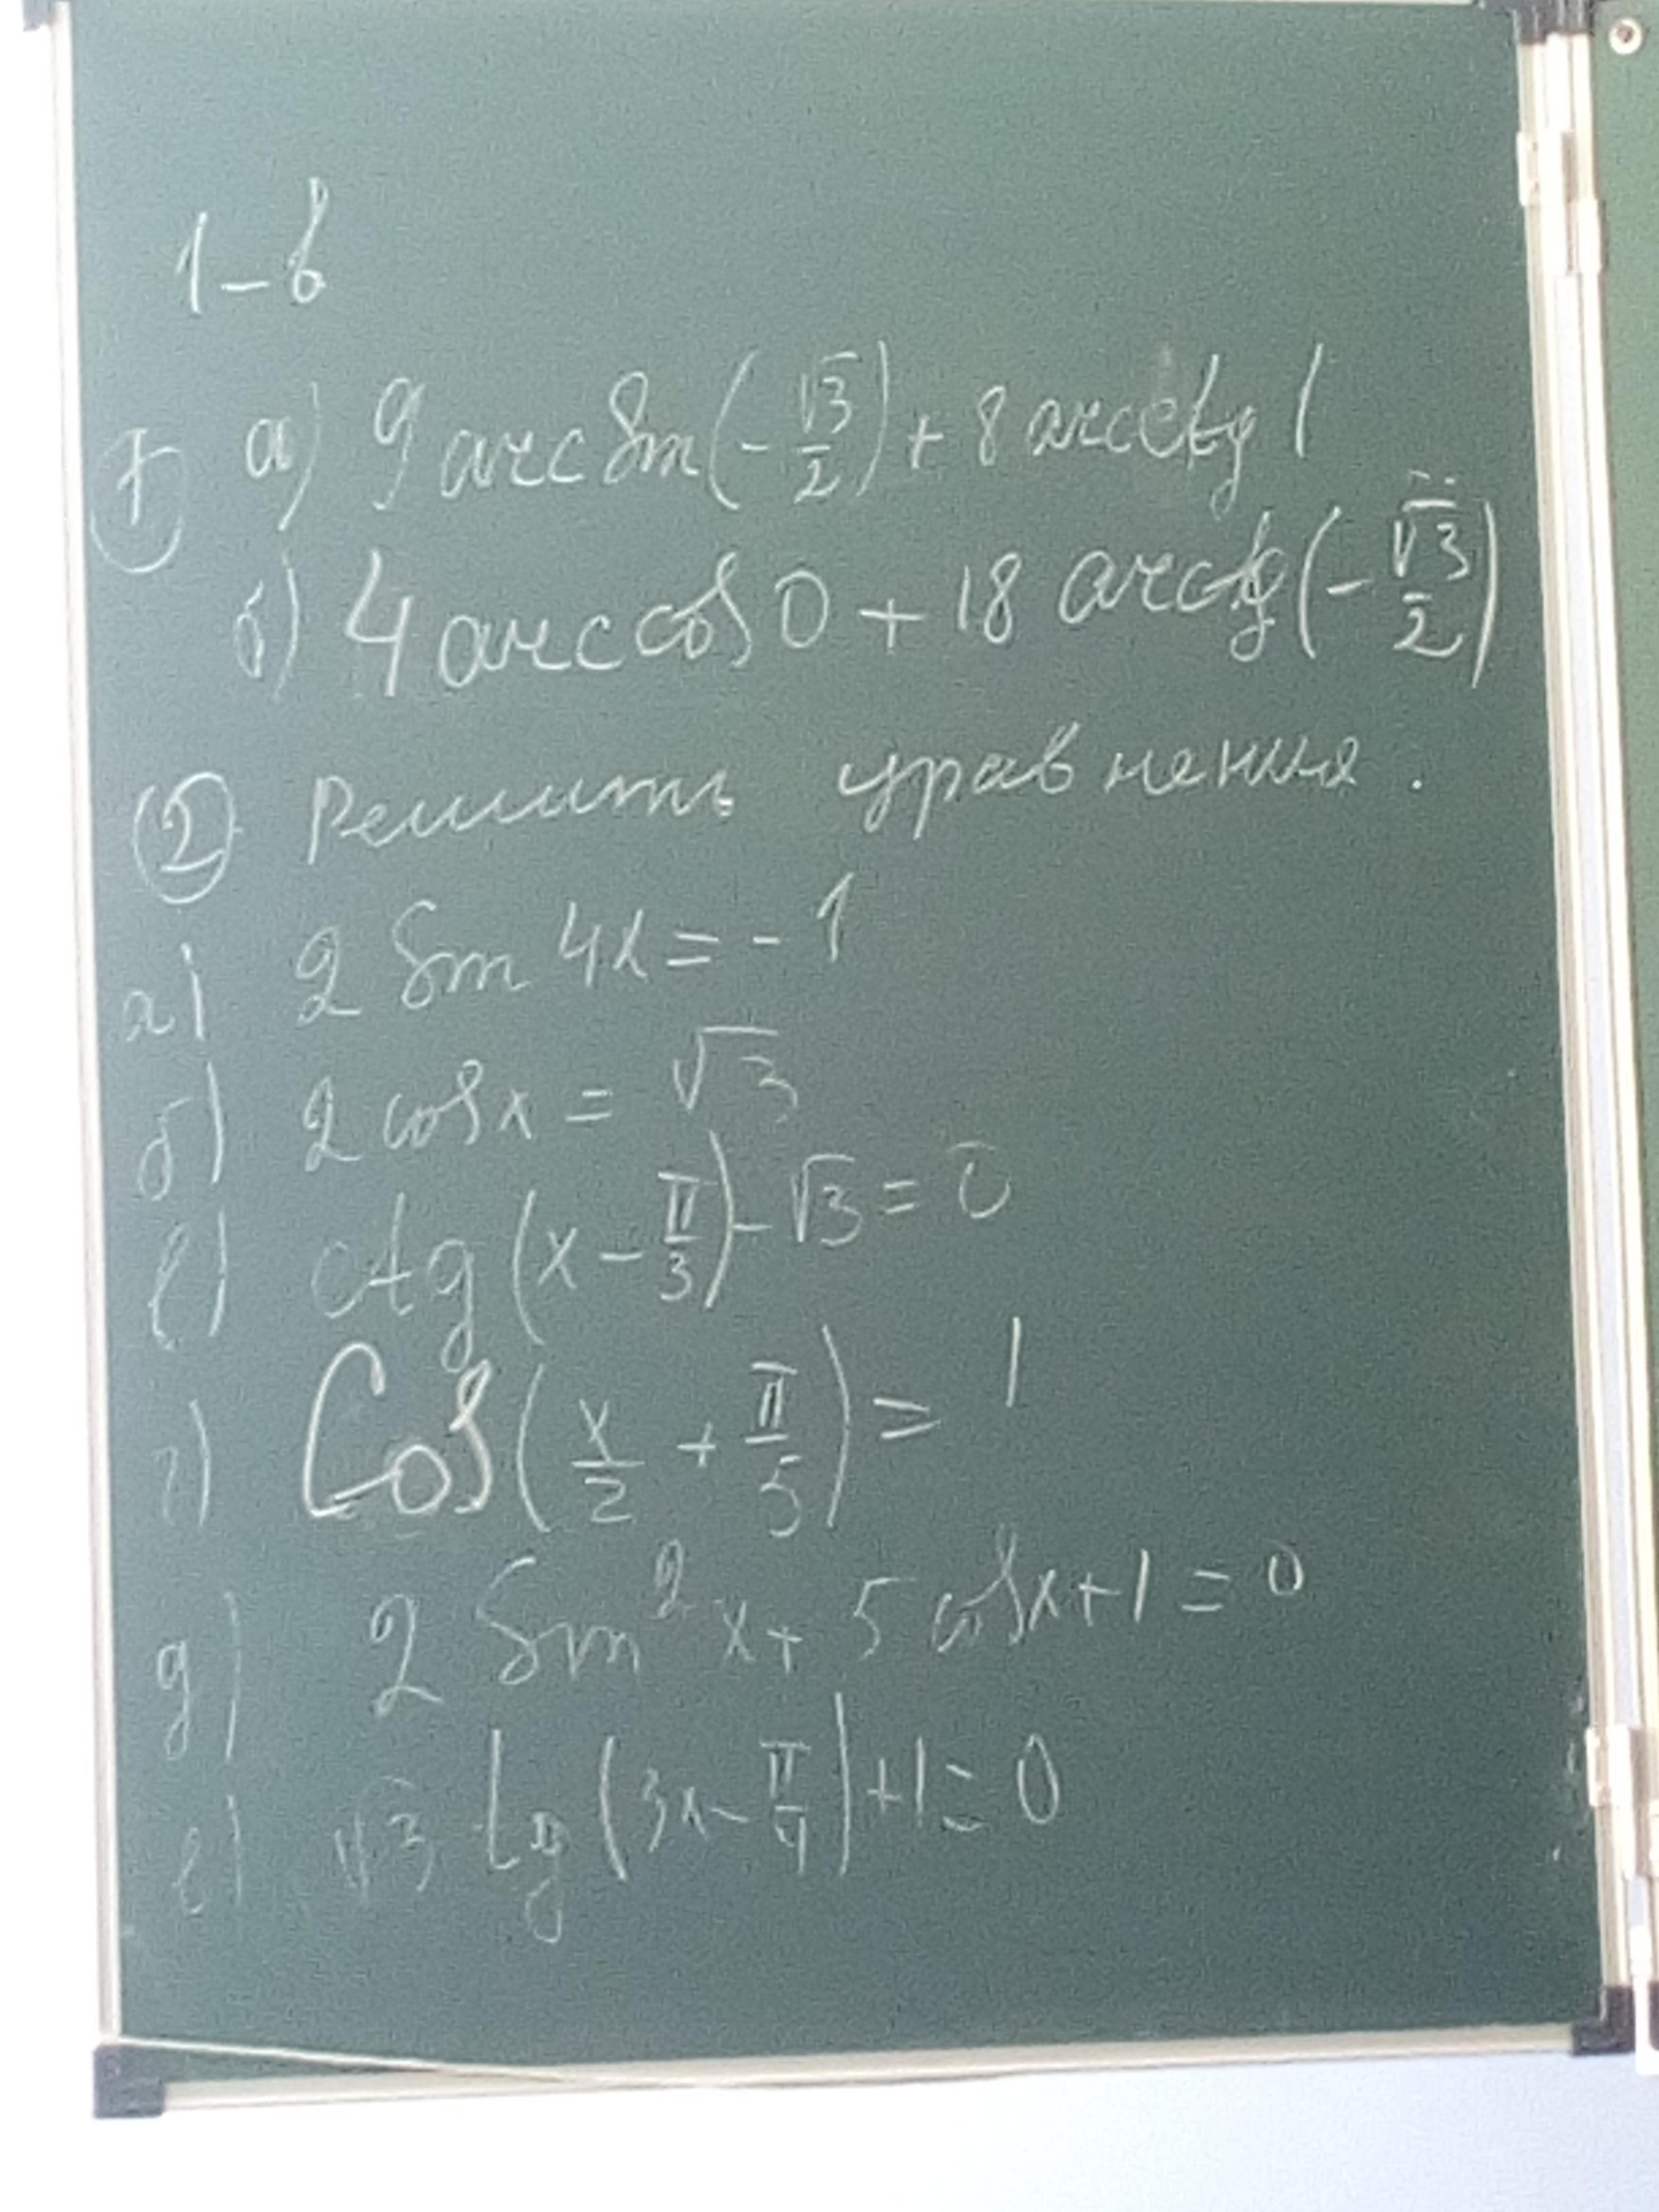 1-в
① а) 9 arcsin(-√3/2) + 8 arcctg 1
б) 4 arccos 0 + 18 arctg(-√3/2)
② Решить уравнения.
а) 2 sin 4x = -1
б) 2 cos x = √3
в) ctg(x - π/3) - √3 = 0
г) Cos(x/2 + π/5) = 1
д) 2 sin² x + 5 cos x + 1 = 0
е) √3 tg(3x - π/4) + 1 = 0